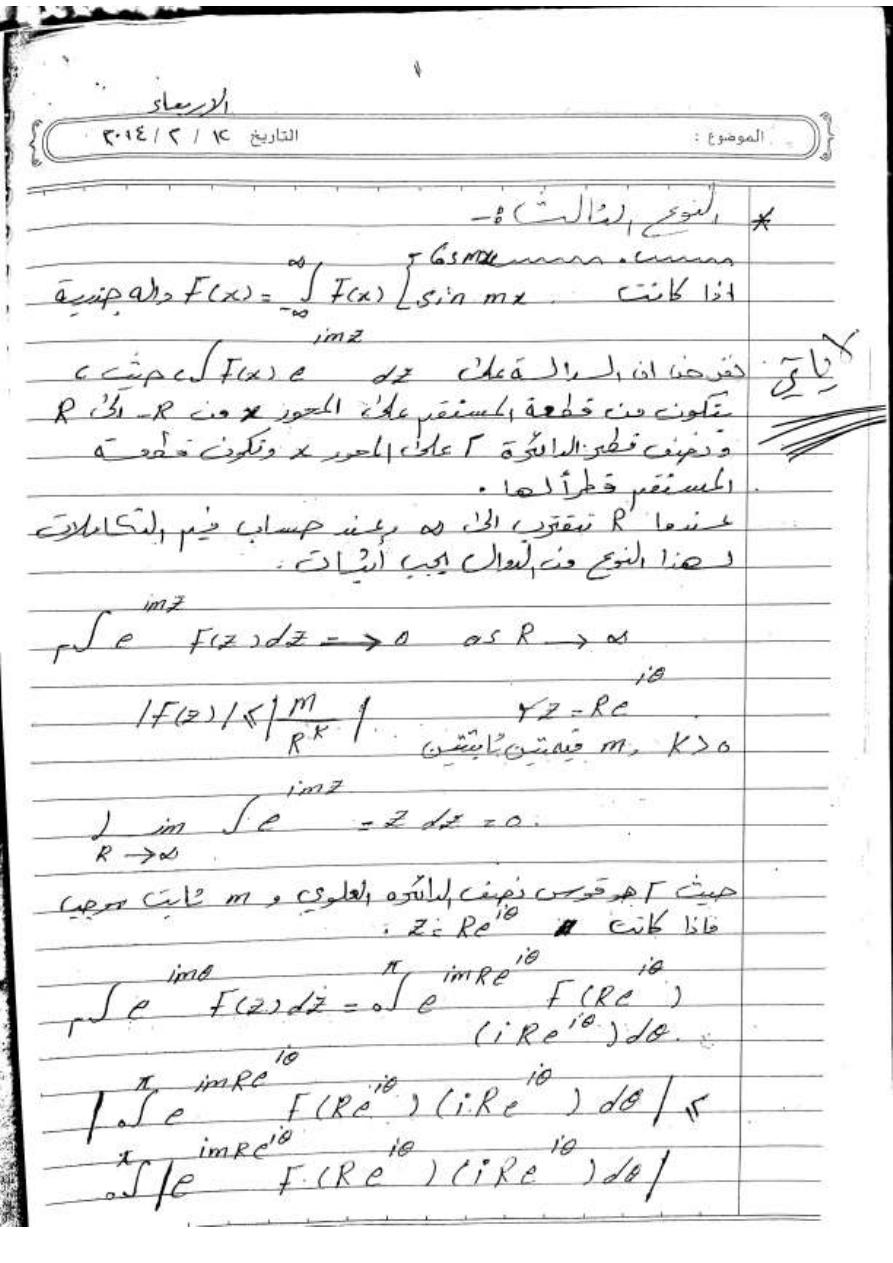 الاربعاء
الموضوع : التاريخ ١٢ / ٢ / ٢٠١٤
* النوع الثالث :-
اذا كانت F(x) دالة جذرية = ∫_{-∞}^{∞} F(x) [cos mx sin mx
نفرضنا ان الدالة على ∫ F(x) e^{imz} dz حيث c
يتكون من قطعة المستقيم على المحور x من -R الى R
ونصف قطر الدائرة Γ على المحور x وتكون قطعة
المستقيم قطراً لها .
عندما R تقترب الى ∞ وعند حساب قيم التكاملات
لهذا النوع من الدوال يجب أثبات :
∫_Γ e^{imz} F(z) dz => 0 as R → ∞
|F(z)| ≤ | m / R^k | z = Re^{iθ}
m, k > 0 قيمتين ثابتتين
lim_{R → ∞} ∫ e^{imz} = z dz = 0.
حيث Γ هو قوس نصف الدائره العلوي و m ثابت موجب
فاذا كانت z = Re^{iθ} :
∫_Γ e^{imθ} F(z) dz = ∫_0^π e^{imRe^{iθ}} F(Re^{iθ})
(iRe^{iθ}) dθ.
| ∫_0^π e^{imRe^{iθ}} F(Re^{iθ}) (iRe^{iθ}) dθ | ≤
∫_0^π | e^{imRe^{iθ}} F(Re^{iθ}) (iRe^{iθ}) dθ |